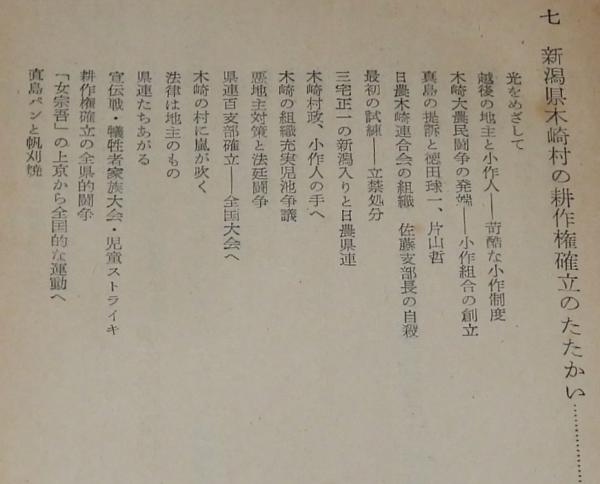 七　新潟県木崎村の耕作権確立のたたかい…………
光をめざして
越後の地主と小作人――苛酷な小作制度
木崎大農民闘争の発端――小作組合の創立
真島の提訴と徳田球一、片山哲
日農木崎連合会の組織　佐藤支部長の自殺
最初の試練――立禁処分
三宅正一の新潟入りと日農県連
木崎村政、小作人の手へ
木崎の組織充実児池争議
悪地主対策と法廷闘争
県連百支部確立――全国大会へ
木崎の村に嵐が吹く
法律は地主のもの
県連たちあがる
宣伝戦・犠牲者家族大会・児童ストライキ
耕作権確立の全県的闘争
「女宗吾」の上京から全国的な運動へ
直島パンと帆刈焼